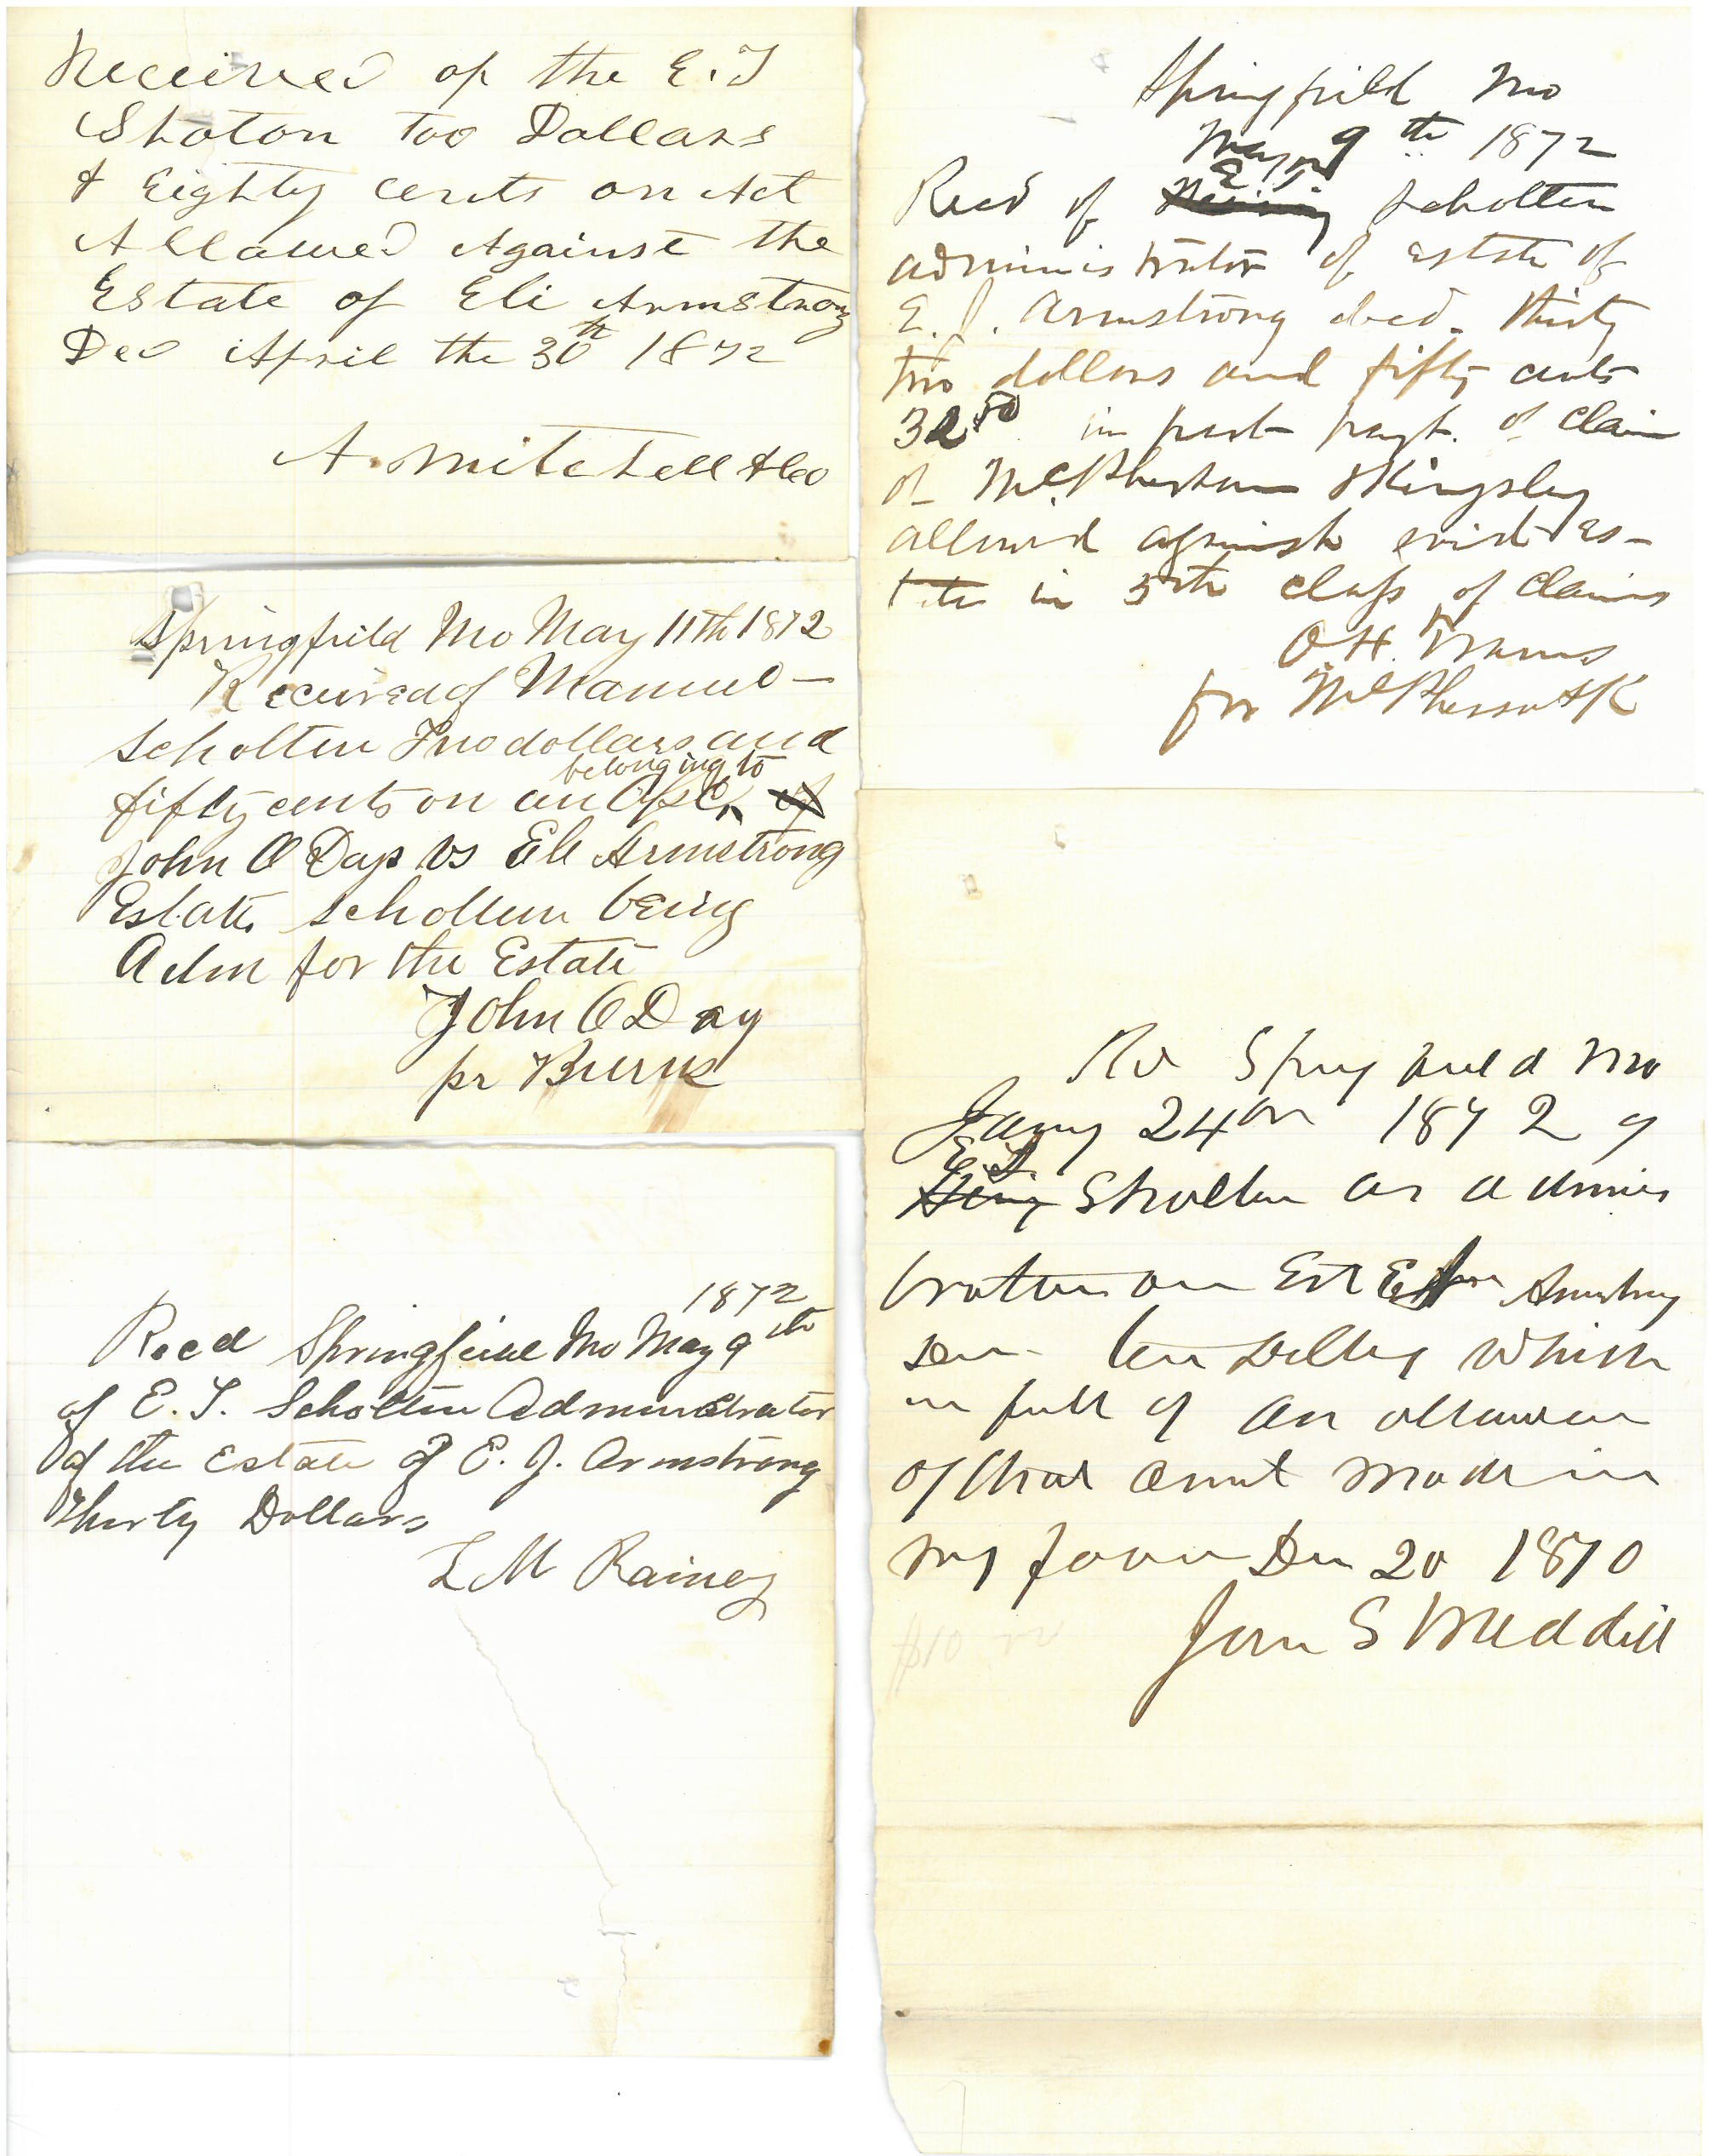 Received of the E. T
Shoton Too Dollars
& Eighty cents on Act
Allowed Against the
Estate of Eli Armstrong
Dec April the 30th 1872
A. Mitchell & Co
Springfield Mo May 11th 1872
Received of
Scholten Two dollars and
belonging to
fifty cents on an of
John O Day vs Eli Armstrong
Estate Scholten being
Adm for the Estate
John O Day
pr Burns
1872
Recd Springfield Mo May 9th
of E. T. Scholten Administrator
of the Estate of E. J. Armstrong
Thirty Dollars
L M Rainey
Springfield Mo
May 9th 1872
E T
Recd of Scholten
administrator of estate of
E. J. Armstrong decd. thirty
two dollars and fifty cents
32 50 in part payt. of claim
of McPherson & Kingsley
allowed against said es-
tate in 5th class of claims
O H
for McPherson & K
Rd Springfield Mo
Jany 24th 1872 of
E. T.
Scholten as adminis
trator on Est Armstrong
ten Dollars which
in full of an allowance
of that amt made in
my favor Dec 20 1870
John S Weddill
$10